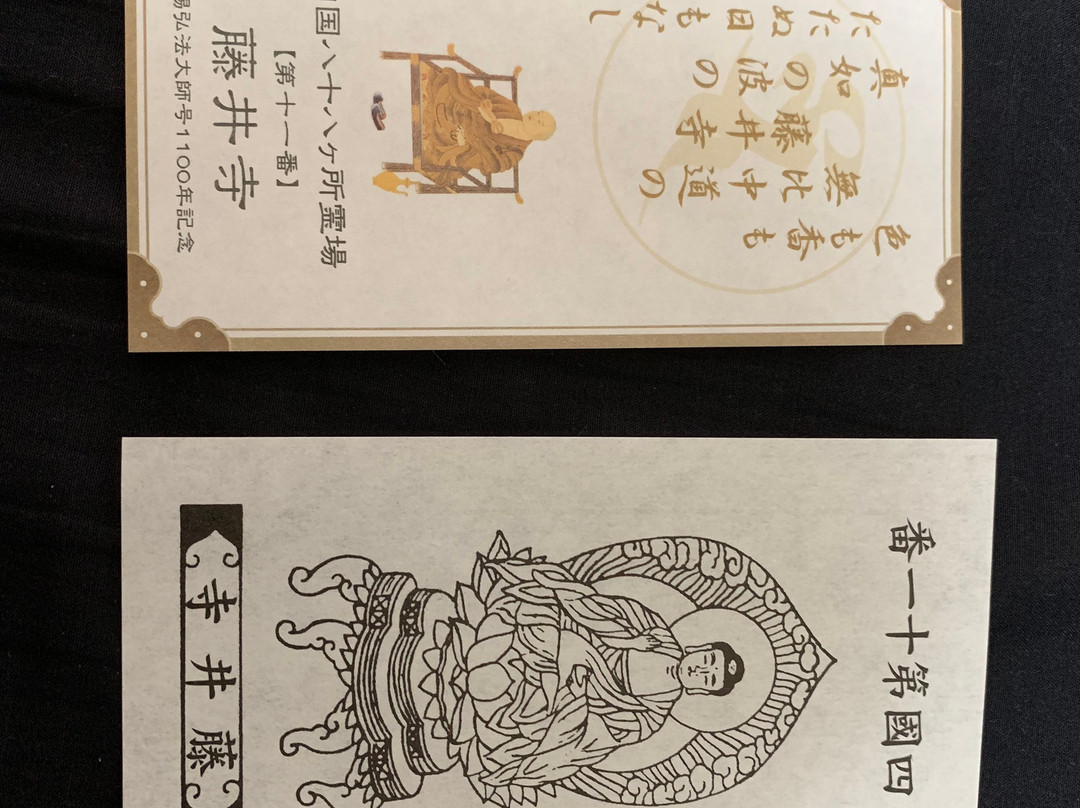 色も香も
無比中道の
藤井寺
真如の波の
たたぬ日もなし
国八十八ヶ所霊場
【第十一番】
藤井寺
弘法大師号1100年記念
四國第十一番
藤井寺